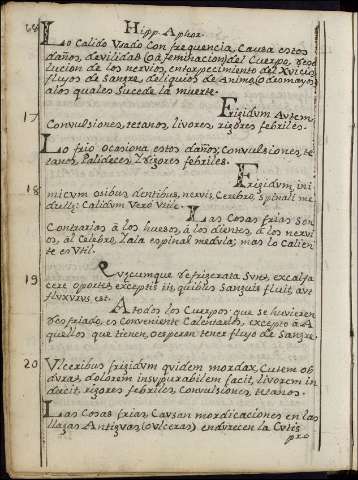 68
Hipp. Aphor.
Lo Calido Vsado Con frequencia, Causa estos
daños, devilidad (o afeminacion) del Cuerpo,
lucion de los nervios, entorpecimiento del Xuicio,
fluxos de Sangre, deliquios de Animo, (o desmayos)
alos quales Sucede la muerte.
17
Frigidvm Avtem,
Convulsiones, tetanos, livores, rigores febriles.
Lo frio ocasiona estos daños, Convulsiones, te
tanos, Palideces, y rigores febriles.
18
Frigidvm, ini
micum osibus dentibus, nervis, Cerebro, Spinali me
dullę: Calidum Verò Vtile.
Las Cosas frias Son
Contrarias à los huesos, à los dientes, à los nervi
os, al Celebro, y ala espinal medula; mas lo Calien
te es Vtil.
19
Quęcumque refrigerata Sunt, excalfa
cere oportet, exceptis iis, quibus Sanguis fluit, avt
flvxvrus est.
A todos los Cuerpos que se huvieren
resfriado, es Conveniente Calentarlos, excepto à A
quellos que tienen, o esperan tener fluxo de Sangre.
20
Vlceribus frigidvm qvidem mordax, Cutem ob
durat, dolorem insupurabilem facit, livorem in
ducit, rigores febriles, Convulsiones, tetanos.
Las Cosas frias, Causan mordicaciones en las
llagas Antiguas (o Vlceras) endvrecen la Cvtis
pro